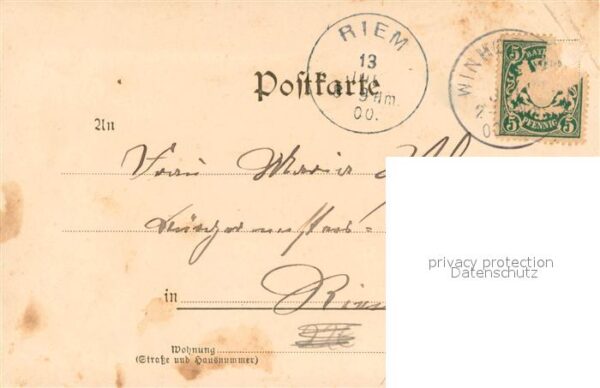 RIEM
13
9 Nm.
00.
WINHÖ
5 BAY
5 PFENNIG 5
Postkarte
An
Frau Maria
Bürgermeisters=
in Riem
Wohnung
(Straße und Hausnummer)
privacy protection
Datenschutz